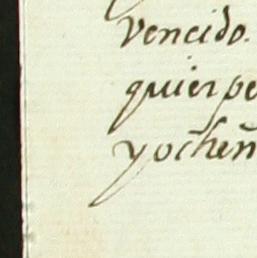 vencido.
quier pe
yocħen̄